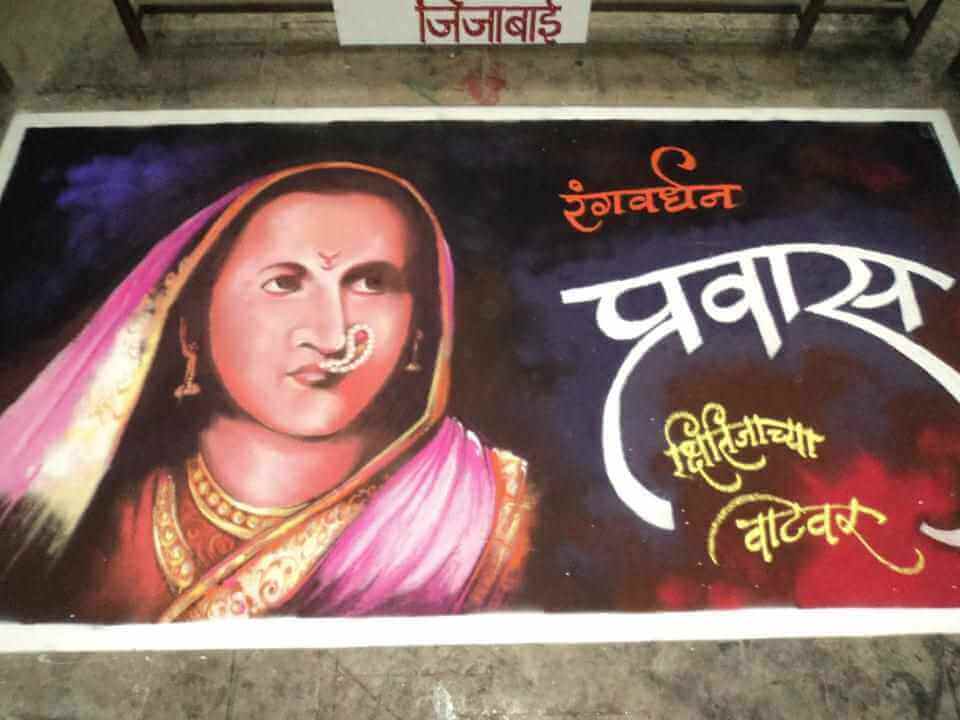 जिजाबाई
रंगवर्धन
प्रवास
क्षितिजाच्या
वाटेवर